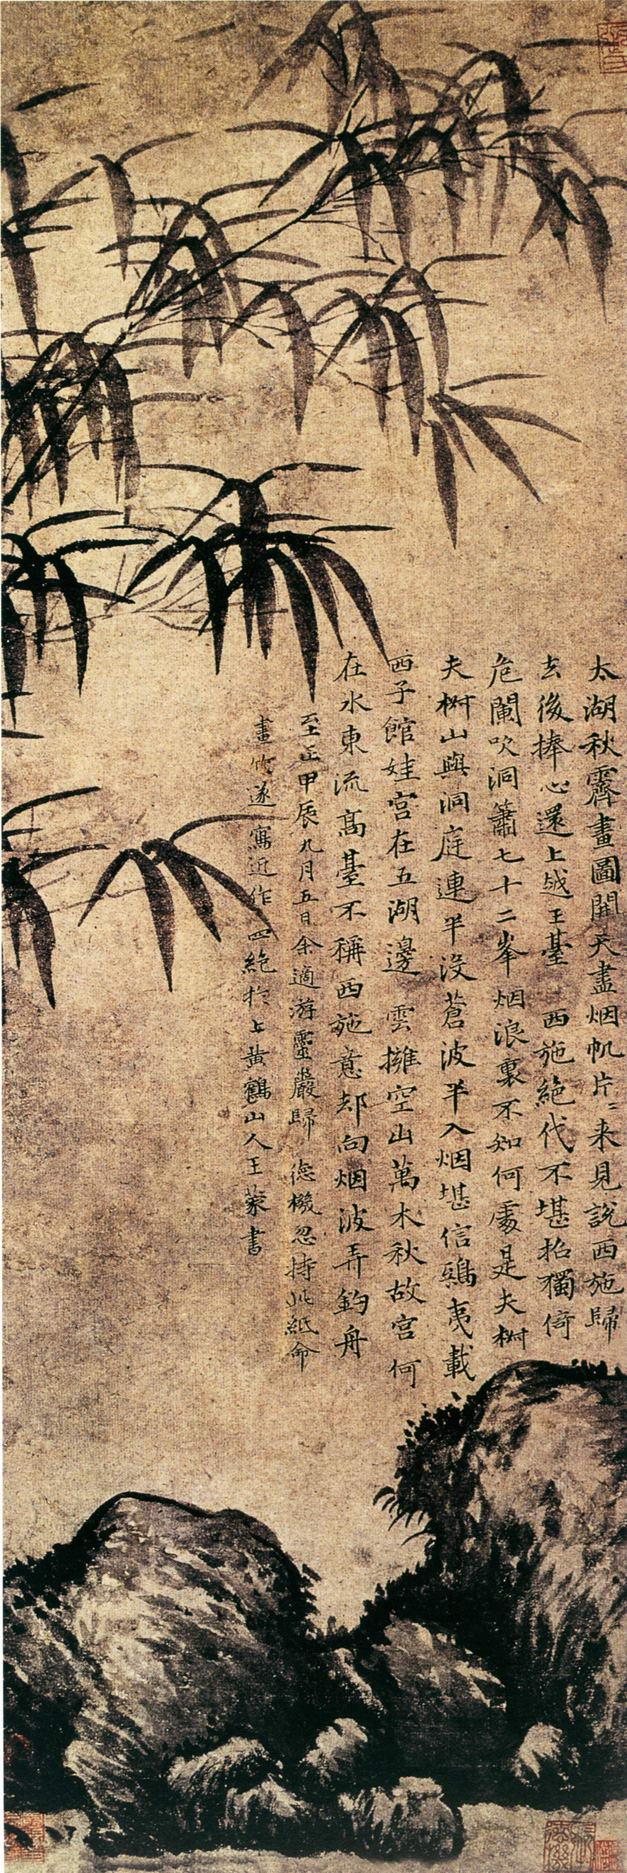 太湖秋霽畫圖開天盡烟帆片〻來見說西施歸
去後捧心還上越王臺 西施絕代不堪招獨倚
危闌吹洞簫七十二峯烟浪裏不知何處是夫椒
夫椒山與洞庭連半沒蒼波半入烟堪信鴟夷載
西子館娃宮在五湖邊 雲擁空山萬木秋故宮何
在水東流高臺不稱西施意却向烟波弄釣舟
至正甲辰九月五日余適游靈巖歸 德機忽持此紙命
畫竹遂寫近作四絕於上黃鶴山人王蒙書